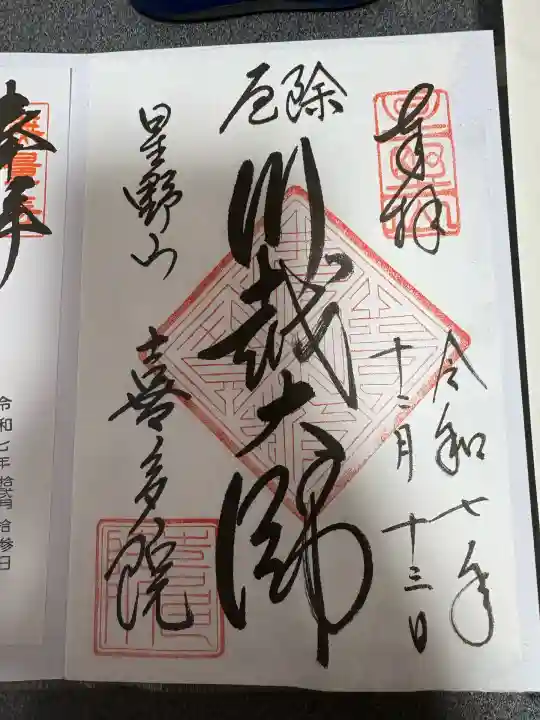 奉拝
令和七年
十二月十三日
厄除
川越大師
星野山
喜多院
令和七年 拾弐月 拾参日